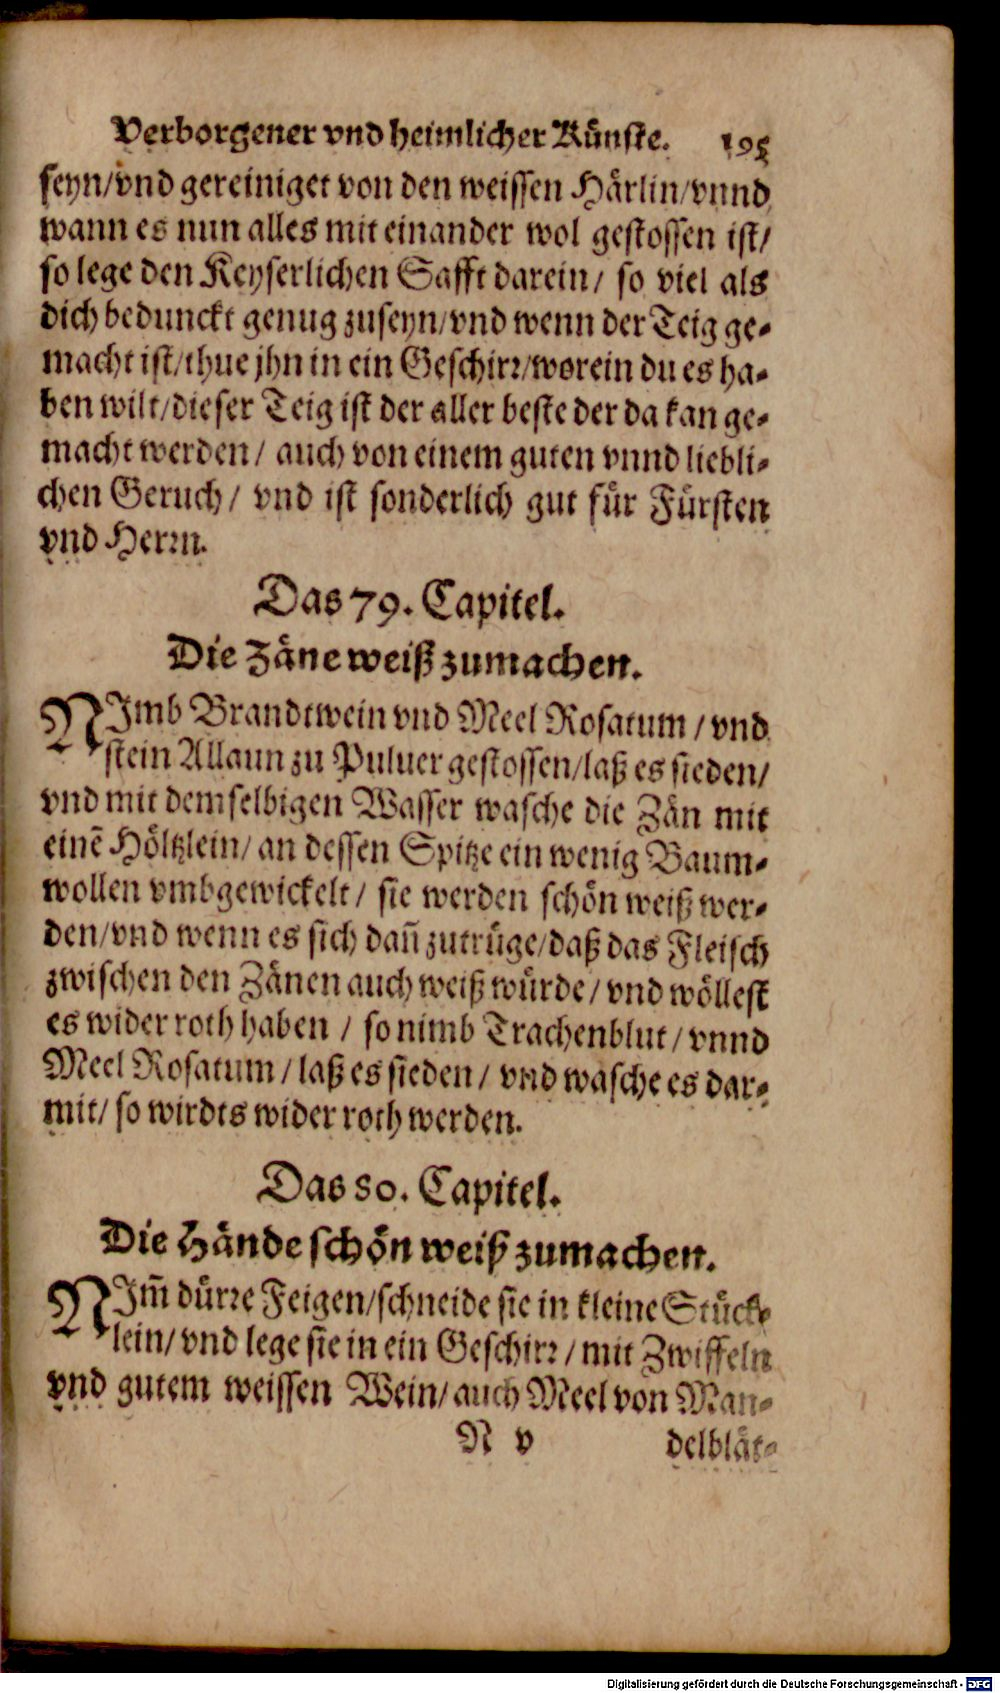 Verborgener vnd heimlicher Künste. 195
seyn/vnd gereiniget von den weissen Härlin/vnnd
wann es nun alles mit einander wol gestossen ist/
so lege den Keyserlichen Safft darein/ so viel als
dich bedunckt genug zuseyn/vnd wenn der Teig ge-
macht ist/thue jhn in ein Geschirr/worein du es ha-
ben wilt/dieser Teig ist der aller beste der da kan ge-
macht werden/ auch von einem guten vnnd liebli-
chen Geruch/ vnd ist sonderlich gut für Fürsten
vnd Herrn.
Das 79. Capitel.
Die Zäne weiß zumachen.
NJmb Brandtwein vnd Meel Rosatum/vnd
stein Allaun zu Puluer gestossen/laß es sieden/
vnd mit demselbigen Wasser wasche die Zän mit
einē Höltzlein/an dessen Spitze ein wenig Baum-
wollen vmbgewickelt/ sie werden schön weiß wer-
den/vnd wenn es sich dañ zutrüge/daß das Fleisch
zwischen den Zänen auch weiß würde/vnd wöllest
es wider roth haben / so nimb Trachenblut/vnnd
Meel Rosatum/laß es sieden/ vnd wasche es dar-
mit/ so wirdts wider roth werden.
Das 80. Capitel.
Die Hände schön weiß zumachen.
NJm̄ dürre Feigen/schneide sie in kleine Stück-
lein/vnd lege sie in ein Geschirr/mit Zwiffeln
vnd gutem weissen Wein/auch Meel von Man-
N v delblät-
Digitalisierung gefördert durch die Deutsche Forschungsgemeinschaft - DFG